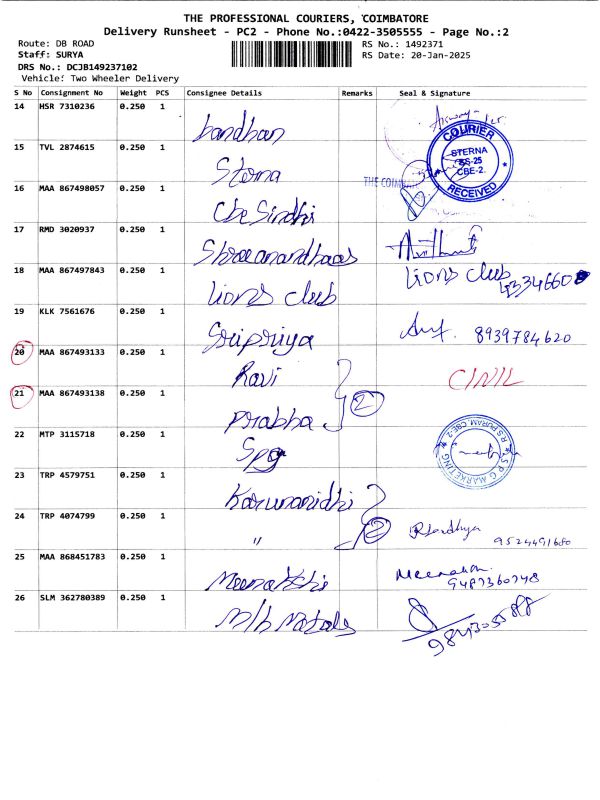 THE PROFESSIONAL COURIERS, COIMBATORE
Delivery Runsheet - PC2 - Phone No.:0422-3505555 - Page No.:2
Route: DB ROAD
RS No.: 1492371
Staff: SURYA
RS Date: 20-Jan-2025
DRS No.: DCJB149237102
Vehicle: Two Wheeler Delivery
S No Consignment No Weight PCS Consignee Details Remarks Seal & Signature
14 HSR 7310236 0.250 1 bandhan
COURIER STERNA SS-25 CBE-2. RECEIVED
15 TVL 2874615 0.250 1 Sterna
16 MAA 867498057 0.250 1 Cbe Sindhi
17 RMD 3020937 0.250 1 Shree anandhaas
18 MAA 867497843 0.250 1 Lions club Lions Club
19 KLK 7561676 0.250 1 Sripriya 8939784620
20 MAA 867493133 0.250 1 Ravi
21 MAA 867493138 0.250 1 Prabha 2
22 MTP 3115718 0.250 1 Spg S P G MARKETING R S PURAM, CBE-2
23 TRP 4579751 0.250 1 Karunanidhi
24 TRP 4074799 0.250 1 " 2 R Sandhya 9524491680
25 MAA 868451783 0.250 1 Meenakshi 9487360748
26 SLM 362780389 0.250 1